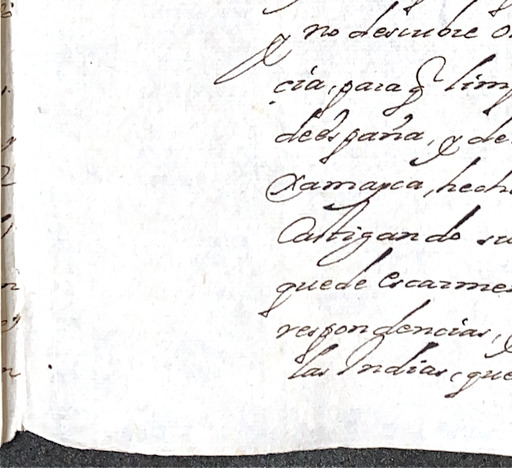 y no descubre
cia, para q̃ lim
de españa, y de
Xamayca, hech
Castigando su
quede escarme
respondencias,
las Indias, que